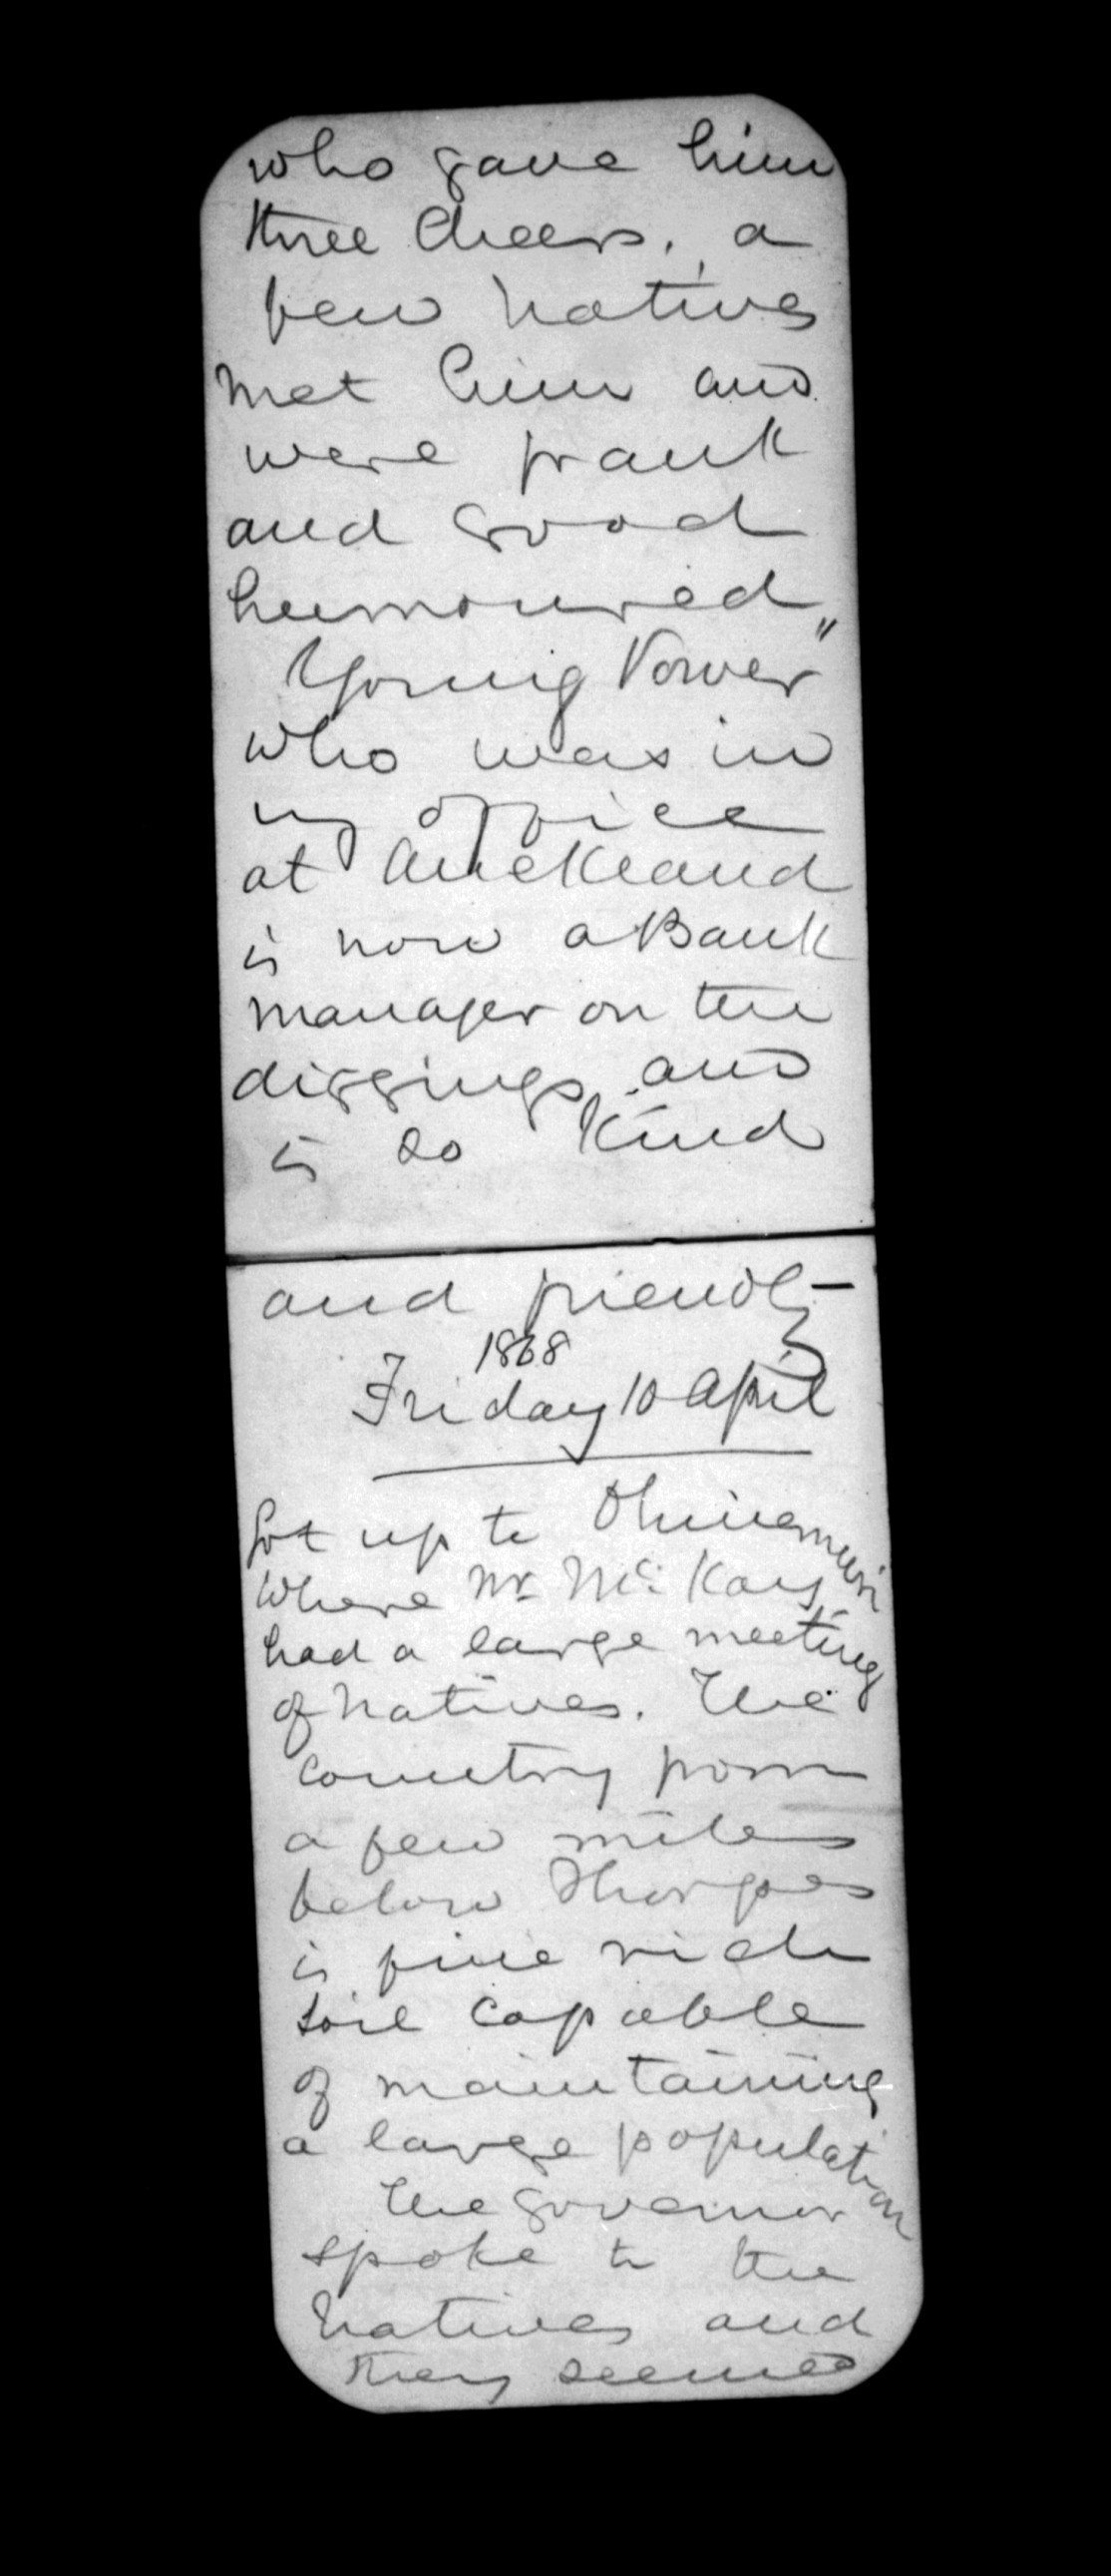 who gave him
three Cheers. a
few natives
met him and
were frank
and good
humoured "
Young Power
who was in
my office
at Auckland
is now a Bank
manager on the
diggings and
is so Kind
and friendly –
1868
Friday 10 April
Got up to Ohinemuri
where Mr. McKay
had a large meeting
of natives. The
country from
a few miles
below Thorpes
is fine rich
soil capable
of maintaining
a large population
The Governor
spoke to the
natives and
they seemed